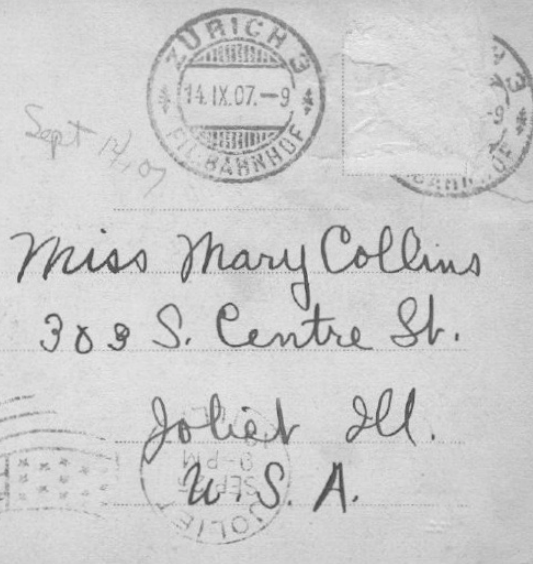 ZÜRICH 3
14.IX.07.-9
FIL. BAHNHOF
Sept 14, 07
Miss Mary Collins
303 S. Centre St.
Joliet Ill.
U. S. A.
JOLIET
SEP
9-PM